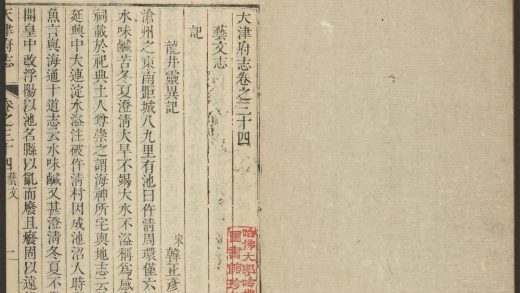 天津府志卷之三十四
藝文志
記
龍井靈異記
宋 韓正彦
滄州之東南距城八九里有池曰仵清周環僅六
水味鹹苦冬夏澄清大旱不竭大水不溢稱爲感
祠載於祀典土人尊崇之謂海神所宅輿地志云
延興中大連淀水溢注破仵清村因成池沼人時
魚言與海通十道志云水味鹹又甚澄清冬夏不
開皇中改浮陽以池名縣以亂而廢且廢固以遠
天津府志 卷之三十四 藝文 一
哈佛大學哈
圖書館珍